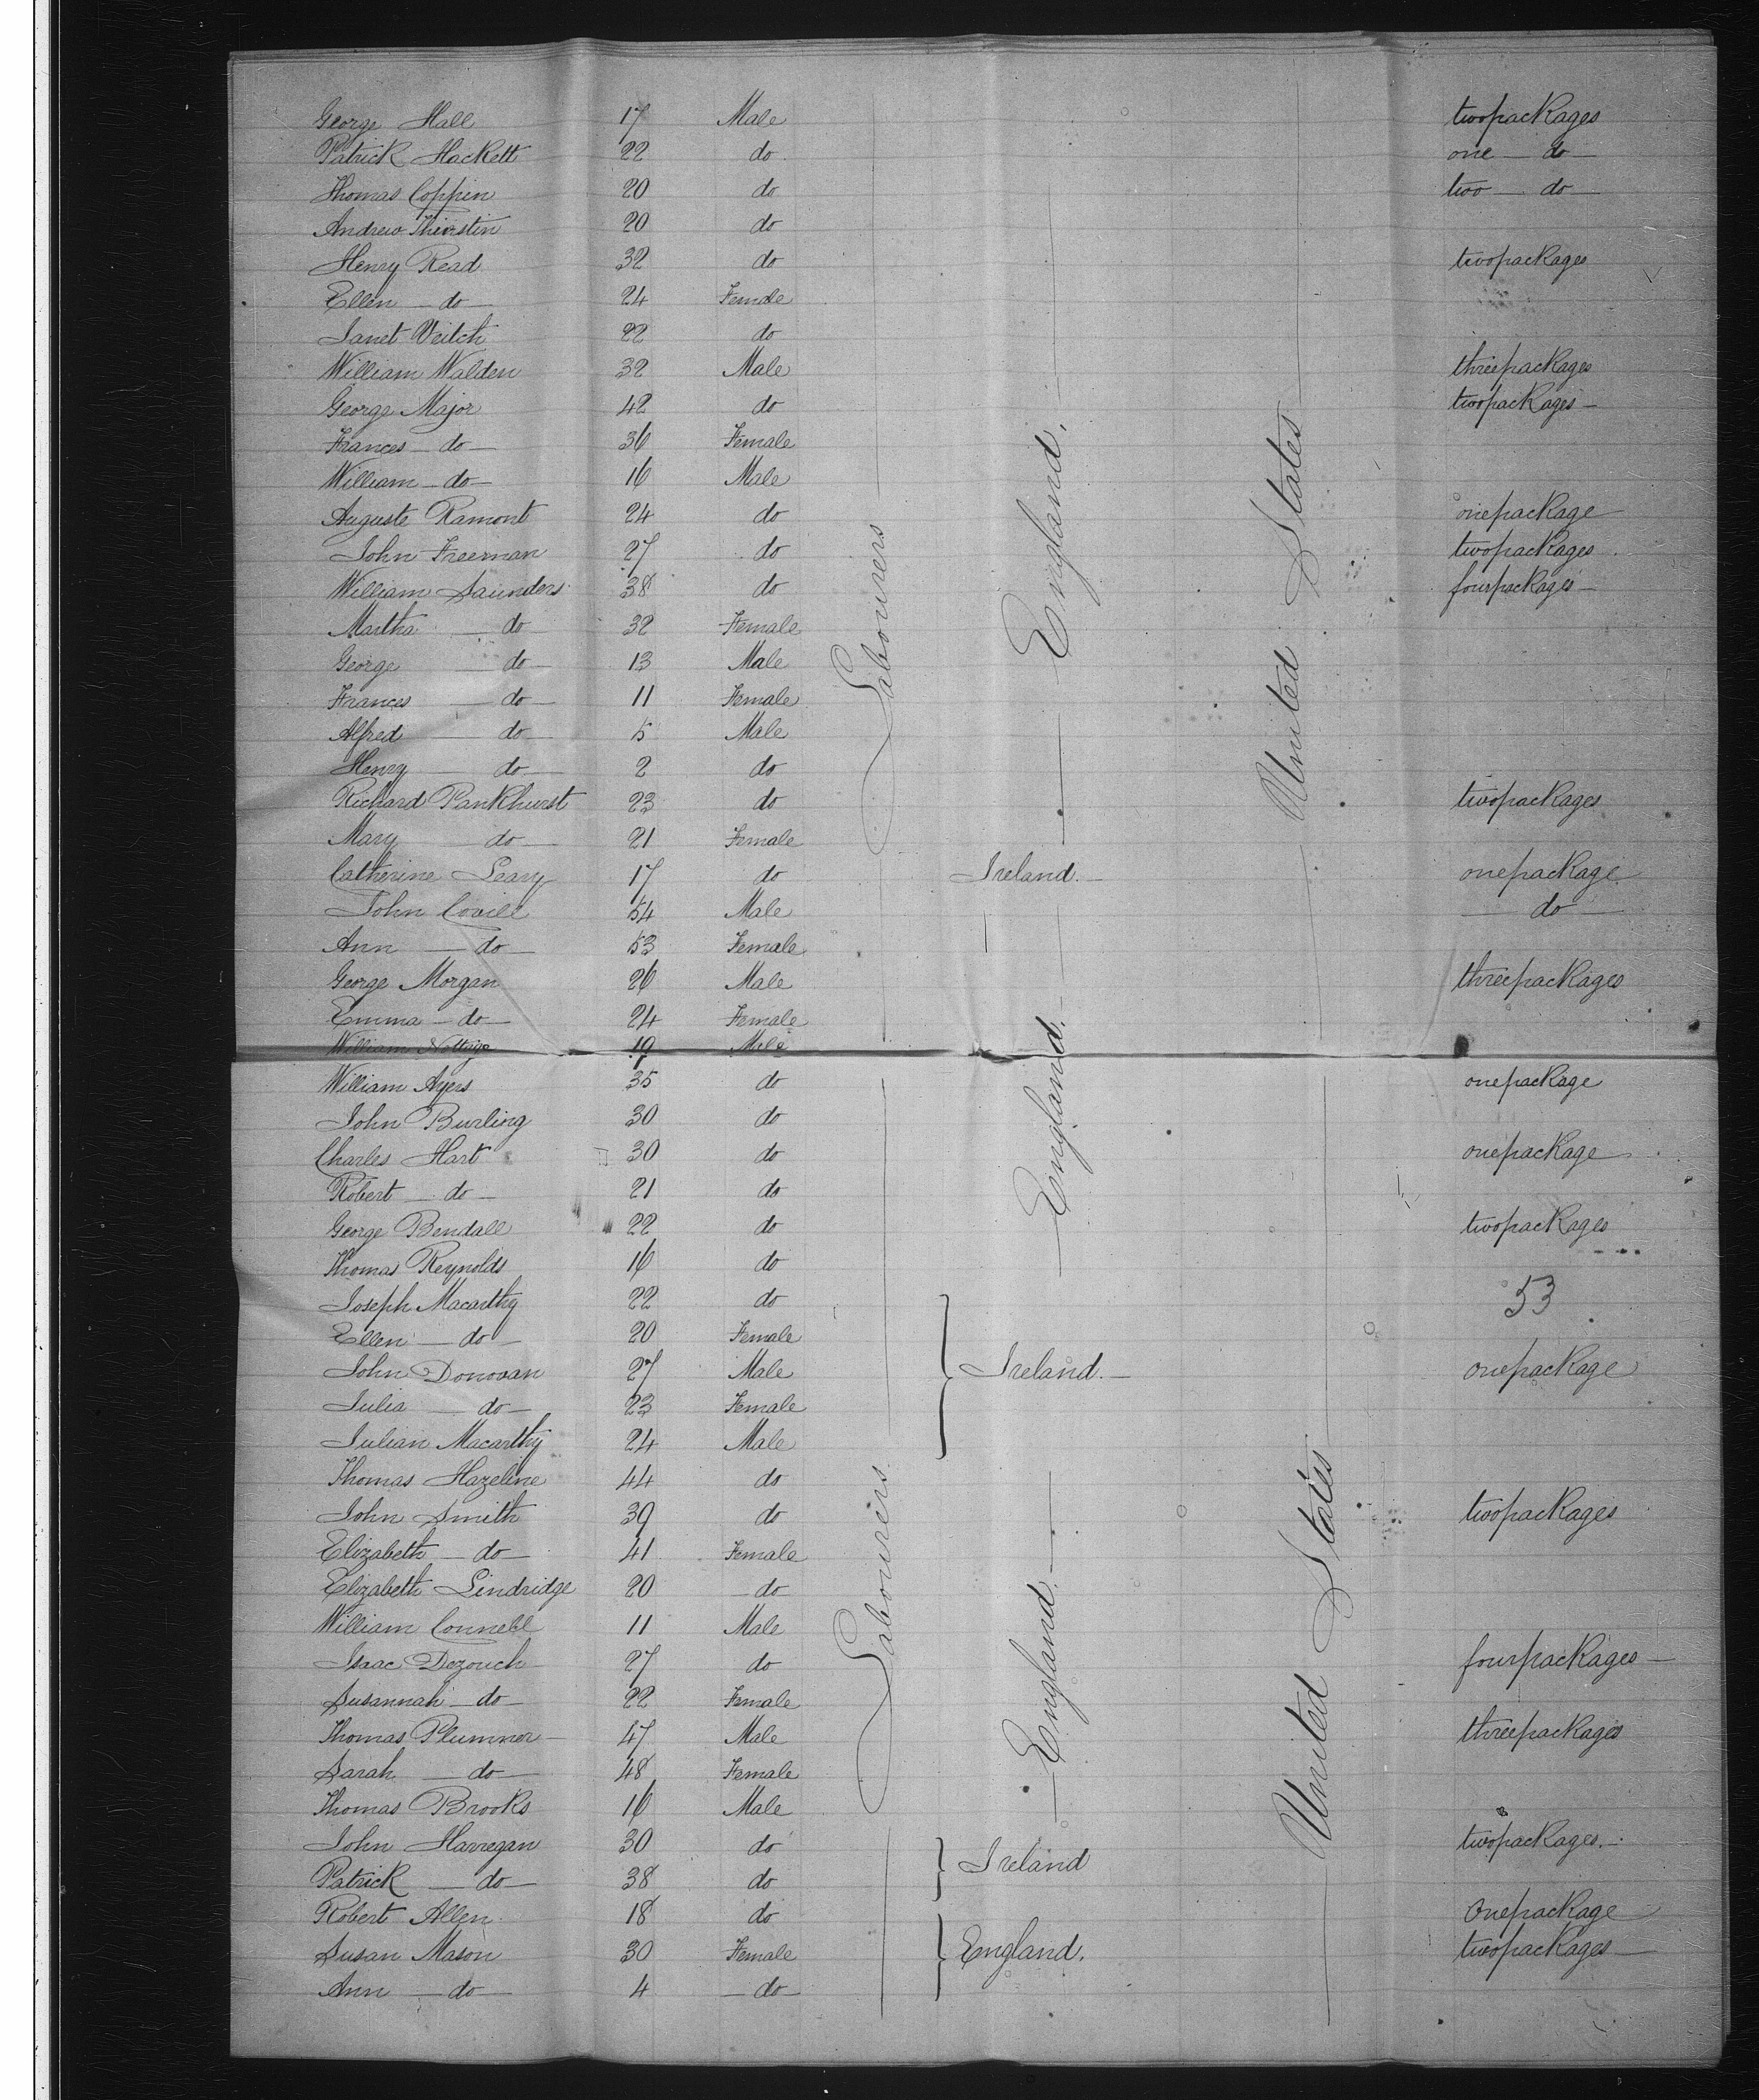 George Hall 17 Male twopackages
Patrick Hackett 22 do one — do —
Thomas Coppin 20 do two — do —
Andrew Thirstin 20 do
Henry Read 32 do twopackages
Ellen — do — 24 Female
Janet Veitch 22 do
William Walden 32 Male threepackages
George Major 42 do twopackages —
Frances — do — 36 Female
William — do — 16 Male
Auguste Ramont 24 do onepackage
John Freeman 27 do twopackages
William Saunders 38 do fourpackages —
Martha — do 32 Female
George — do — 13 Male
Frances — do — 11 Female
Alfred — do — 5 Male
Henry — do — 2 do
Labourers
England.
United States
Richard Pankhurst 23 do twopackages
Mary do — 21 Female
Catherine Leary 17 do Ireland. — onepackage
John Covill 54 Male — do —
Ann — do — 53 Female
George Morgan 26 Male threepackages
Emma — do — 24 Female
William 19 Male
William Ayers 35 do onepackage
John Burling 30 do
Charles Hart 30 do onepackage
Robert — do — 21 do
George Bendall 22 do twopackages
Thomas Reynolds 16 do
England.
Joseph Macarthy 22 do 53
Ellen — do — 20 Female
John Donovan 27 Male Ireland. — onepackage
Julia — do — 23 Female
Julian Macarthy 24 Male
Thomas Hazeline 44 do
John Smith 39 do twopackages
Elizabeth — do — 41 Female
Elizabeth Lindridge 20 — do
William Connell 11 Male
Isaac Dezouch 27 do fourpackages —
Susannah — do — 22 Female
Thomas Plummer — 47 Male threepackages
Sarah — do — 48 Female
Thomas Brooks 16 Male
Labourers
England.
United States
John Harregan 30 do twopackages. —
Patrick — do — 38 do Ireland
Robert Allen 18 do Onepackage
Susan Mason 30 Female England. twopackages —
Ann — do — 4 — do —